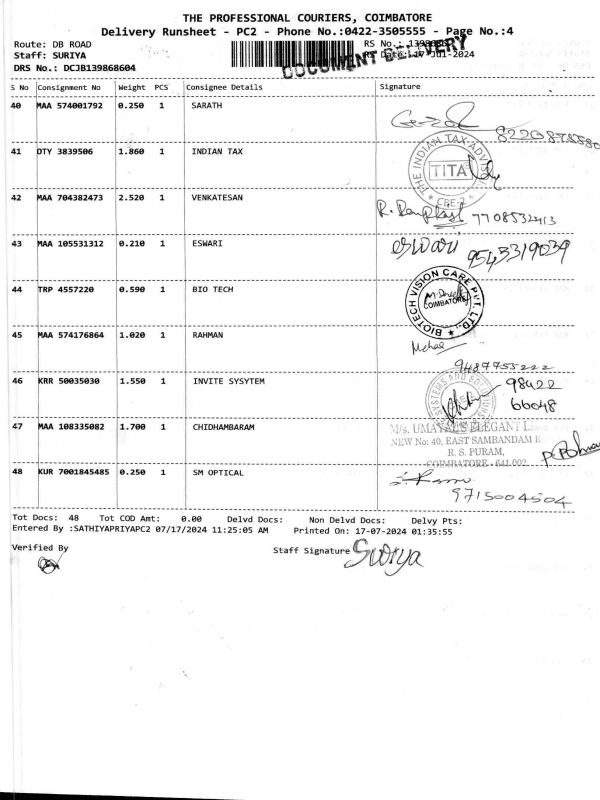 THE PROFESSIONAL COURIERS, COIMBATORE
Delivery Runsheet - PC2 - Phone No.:0422-3505555 - Page No.:4
Route: DB ROAD
RS No.:
Staff: SURIYA
-2024
DRS No.: DCJB139868604
DOCUMENT DELIVERY
S No Consignment No Weight PCS Consignee Details Signature
40 MAA 574001792 0.250 1 SARATH
41 DTY 3839506 1.860 1 INDIAN TAX
THE INDIAN TAX ADVIS
TITA
CBE-2
42 MAA 704382473 2.520 1 VENKATESAN
43 MAA 105531312 0.210 1 ESWARI
eswari 9543319039
44 TRP 4557220 0.590 1 BIO TECH
BIOTECH VISION CARE PVT. LTD.,
COIMBATORE
45 MAA 574176864 1.020 1 RAHMAN
9487755222
46 KRR 50035030 1.550 1 INVITE SYSYTEM
SYSTEMS AND SOLUTIONS
98422
66048
47 MAA 108335082 1.700 1 CHIDHAMBARAM
M/s. UMAYAL'S ELEGANT
NEW No: 40, EAST SAMBANDAM R
R. S. PURAM,
COIMBATORE - 641 002
48 KUR 7001845485 0.250 1 SM OPTICAL
9715004504
Tot Docs: 48 Tot COD Amt: 0.00 Delvd Docs: Non Delvd Docs: Delvy Pts:
Entered By :SATHIYAPRIYAPC2 07/17/2024 11:25:05 AM Printed On: 17-07-2024 01:35:55
Verified By
Staff Signature Suriya